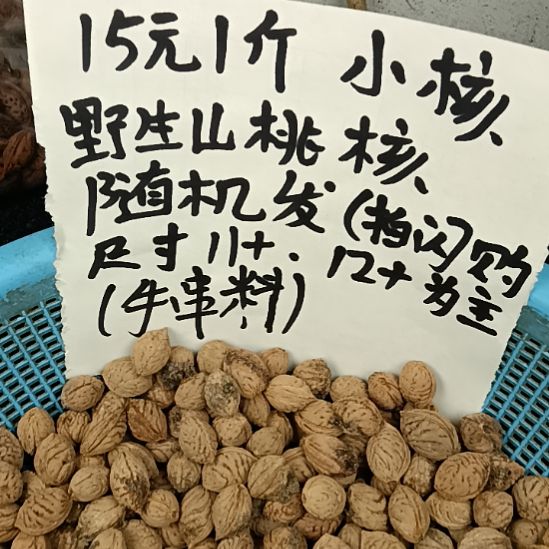 15元1斤 小核
野生山桃核
随机发(拍闪购
尺寸11+. 12+为主
(牛串料)